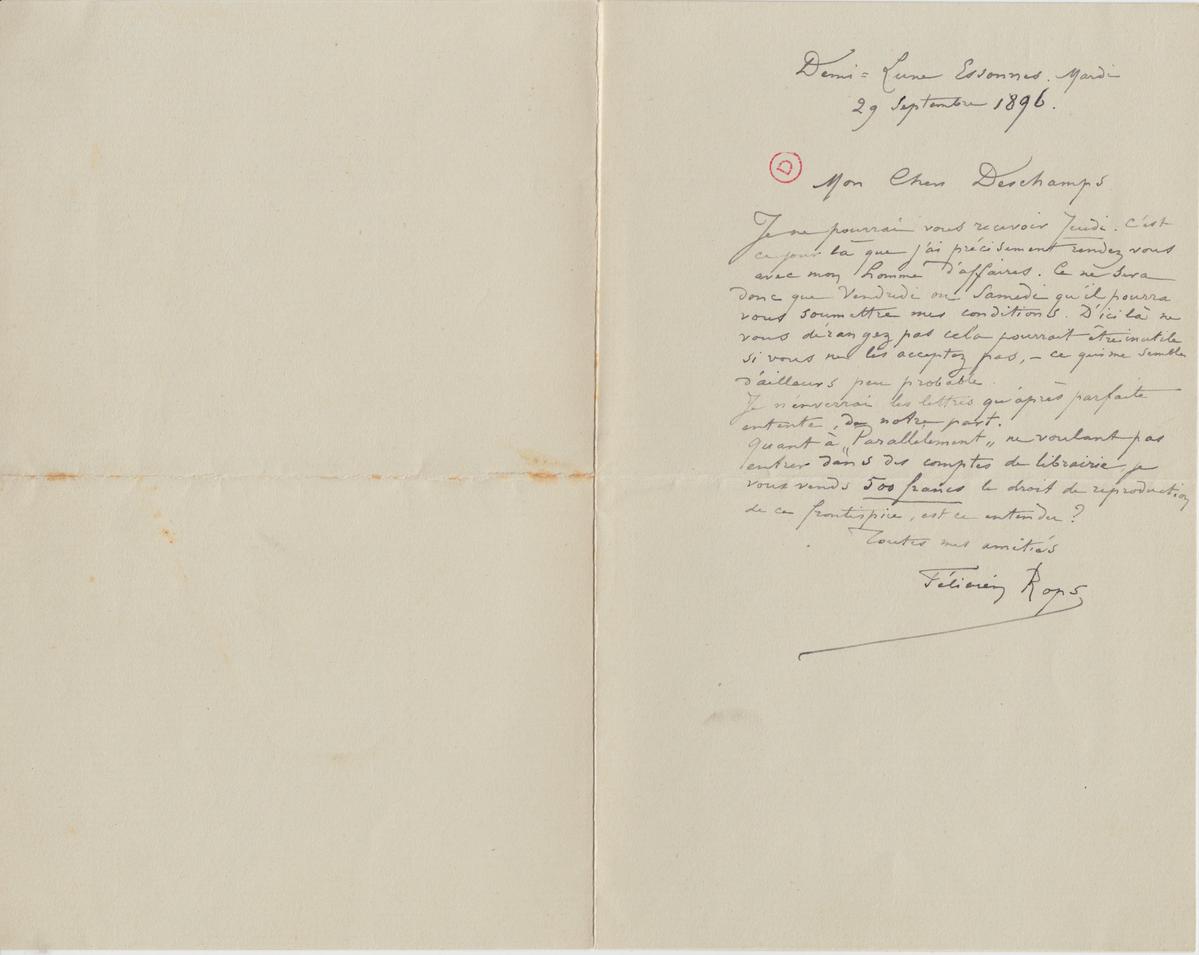 Demi=Lune Essonnes. Mardi
29 Septembre 1896.
D
Mon Cher Deschamps
Je ne pourrai vous recevoir Jeudi. C'est
ce jour là que j'ai précisement rendez vous
avec mon homme d'affaires. Ce ne sera
donc que Vendredi ou Samedi qu'il pourra
vous soumettre mes conditions. D'ici là ne
vous dérangez pas cela pourrait être inutile
si vous ne les acceptez pas, – ce qui me semble
d'ailleurs peu probable.
Je n'enverrai les lettres qu'après parfaite
entente, de notre part.
Quant à „Parallèlement„ ne voulant pas
entrer dans des comptes de librairie, je
vous vends 500 francs le droit de reproduction
de ce frontispice, est ce entendu ?
Toutes mes amitiés
Félicien Rops